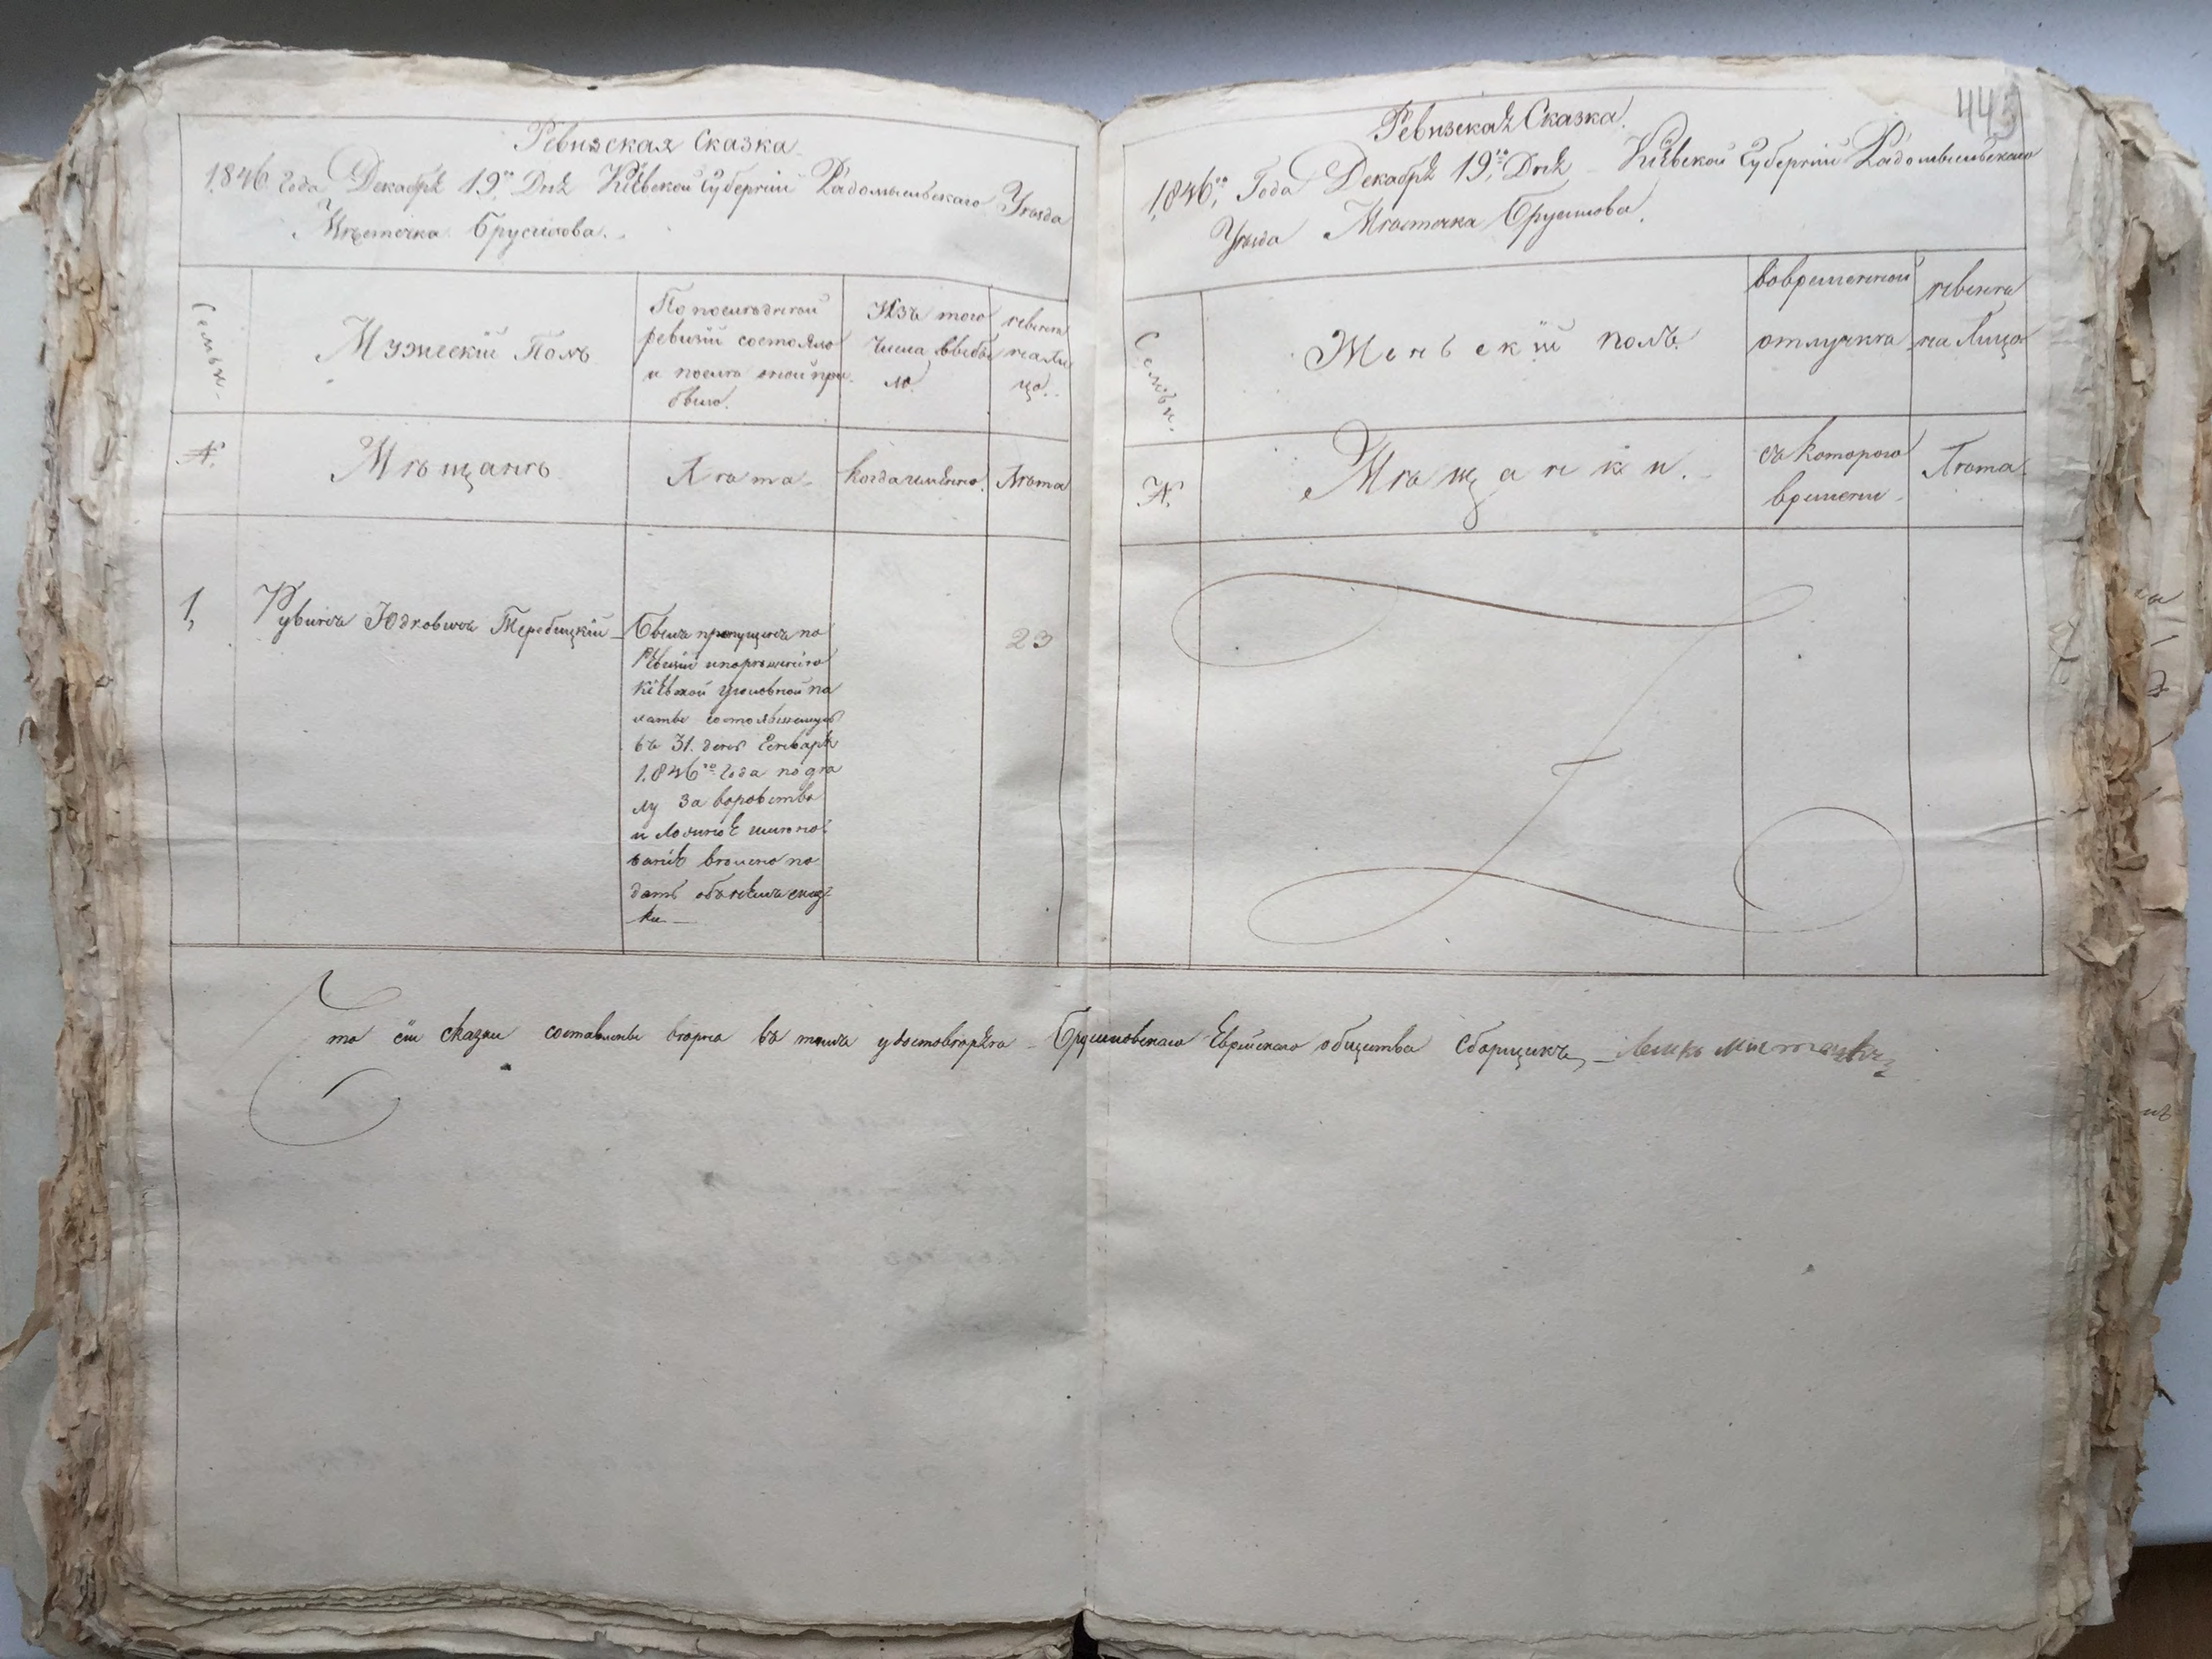 Ревизская Сказка
1846 года Декабря 19го Дня Кіевской Губерніи Радомысльскаго Уезда
Мѣстечка Брусилова.
Семьи.
Мужескій Полъ
По последней
ревизіи состояло
и после оной при
было.
Изъ того
числа выбы
ло.
ныне
на ли
цо.
№.
Мѣщане
Лета
когда именно.
Лета
1,
Рувинъ Юдковичъ Теребицкій
Былъ пропущенъ по
Ревизіи
Кіевской уголовной па
латы состоявшемуся
въ 31. день Генваря
1846го года по де
лу за воровство
и
велено по
дать
ки
23
443
Ревизская Сказка.
1846го, Года Декабря 19го, Дня Кіевской Губерніи Радомысльскаго
Уезда Местечка Брусилова.
Семьи.
Женьскій полъ.
вовременной
отлучке
ныне
на Лицо
№.
Мещанки.
съ которого
времени
Лета.
Что сіи сказки составлены верно въ томъ удостоверяю Брусиловскаго Еврейскаго общества Сборщикъ,